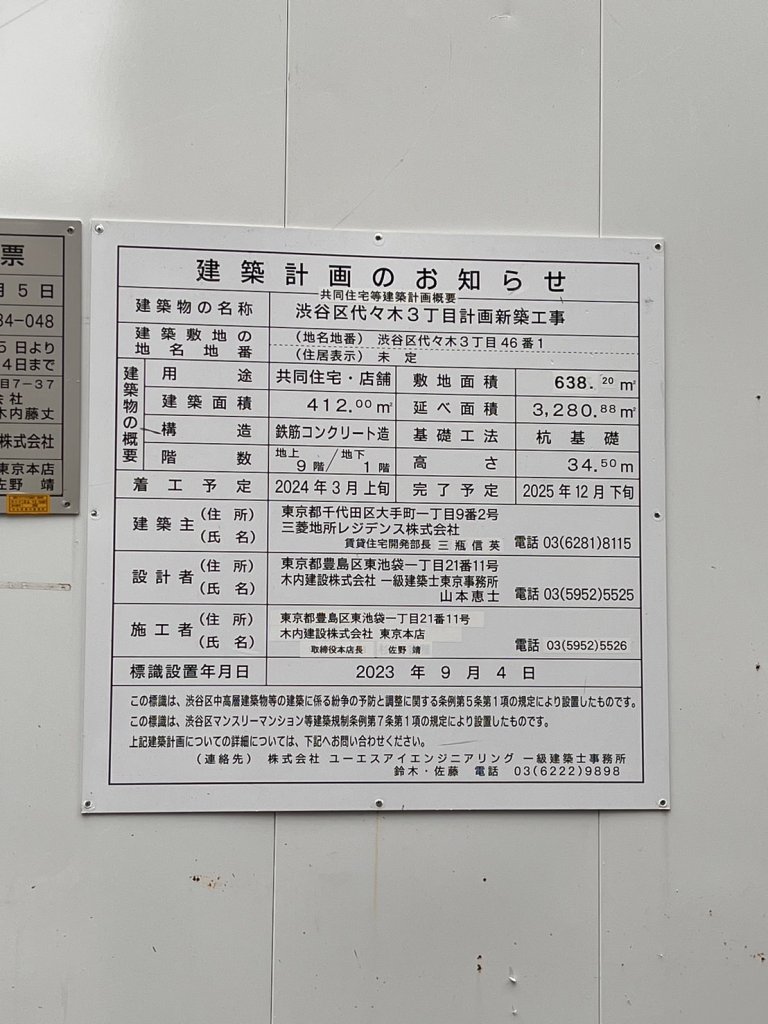 票
月 5 日
34-048
5 日より
4日まで
目7-37
会 社
木内藤丈
株式会社
東京本店
佐野 靖
建築計画のお知らせ
共同住宅等建築計画概要
建築物の名称 渋谷区代々木3丁目計画新築工事
建築敷地の地名地番 (地名地番) 渋谷区代々木3丁目46番1
(住居表示) 未 定
建築物の概要
用途 共同住宅・店舗 敷地面積 638.20㎡
建築面積 412.00㎡ 延べ面積 3,280.88㎡
構造 鉄筋コンクリート造 基礎工法 杭基礎
階数 地上9階/地下1階 高さ 34.50m
着工予定 2024年3月上旬 完了予定 2025年12月下旬
建築主 (住所) 東京都千代田区大手町一丁目9番2号
(氏名) 三菱地所レジデンス株式会社
賃貸住宅開発部長 三瓶信英 電話 03(6281)8115
設計者 (住所) 東京都豊島区東池袋一丁目21番11号
(氏名) 木内建設株式会社 一級建築士東京事務所
山本恵士 電話 03(5952)5525
施工者 (住所) 東京都豊島区東池袋一丁目21番11号
(氏名) 木内建設株式会社 東京本店
取締役本店長 佐野 靖 電話 03(5952)5526
標識設置年月日 2023 年 9 月 4 日
この標識は、渋谷区中高層建築物等の建築に係る紛争の予防と調整に関する条例第5条第1項の規定により設置したものです。
この標識は、渋谷区マンスリーマンション等建築規制条例第7条第1項の規定により設置したものです。
上記建築計画についての詳細については、下記へお問い合わせください。
(連絡先) 株式会社 ユーエスアイエンジニアリング 一級建築士事務所
鈴木・佐藤 電話 03(6222)9898